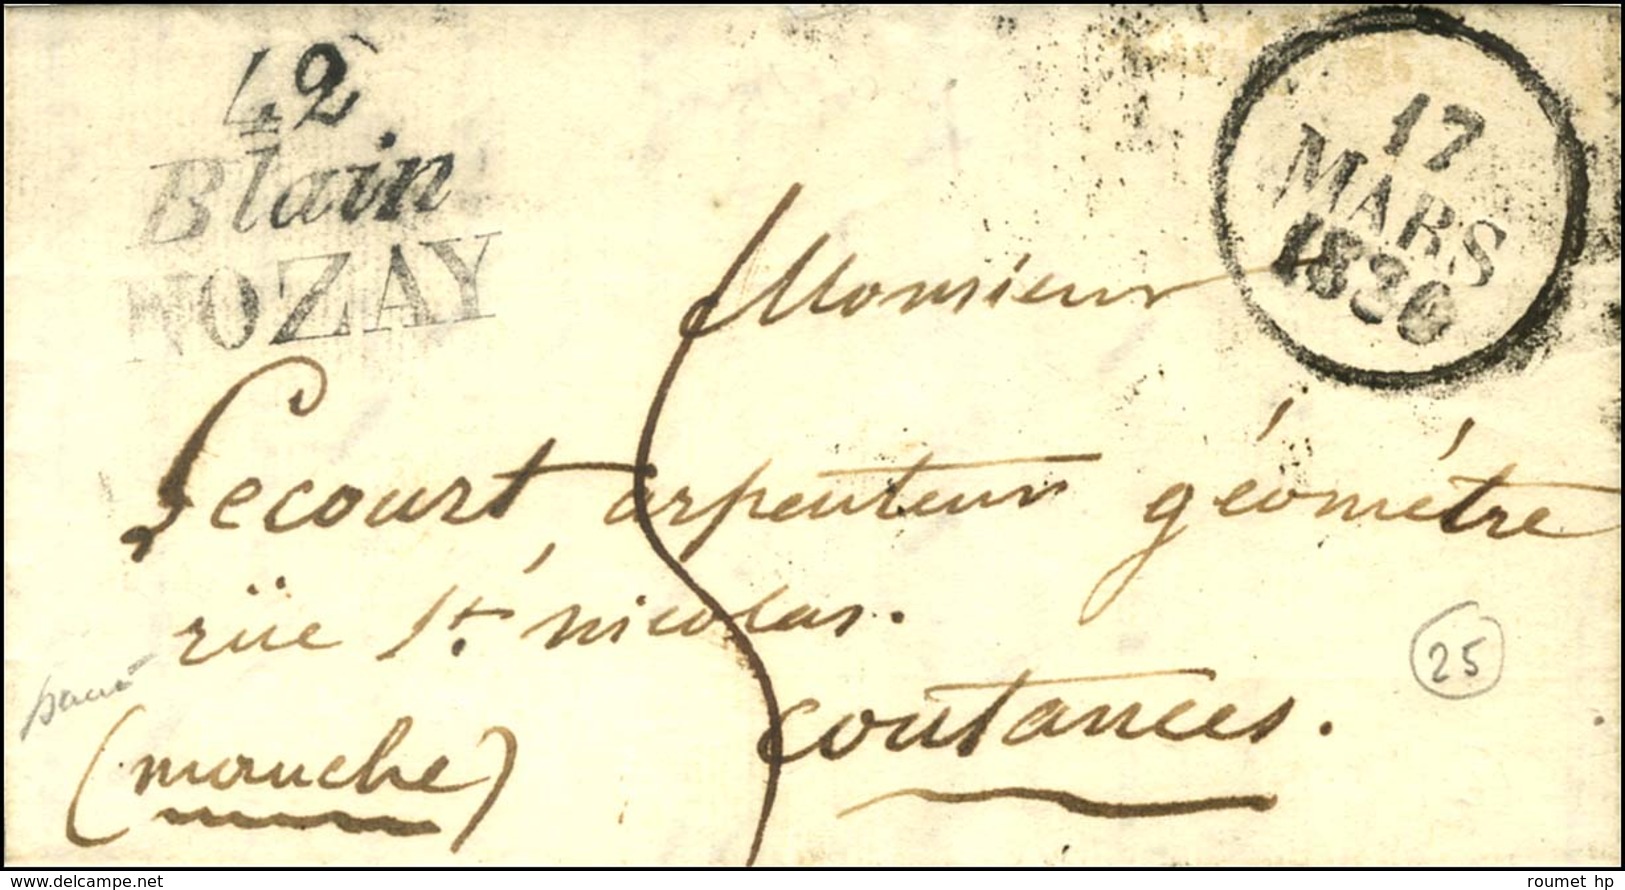 42
Blain
NOZAY
17
MARS
1830
Monsieur
Lecourt arpenteur géométre
rüe St. nicolas.
coutances.
(manche)
25
www.delcampe.net
roumet hp